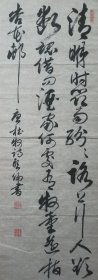 清明時節雨紛紛路上行人欲
斷魂借問酒家何處有牧童遙指
杏花邨
唐杜牧詩
書